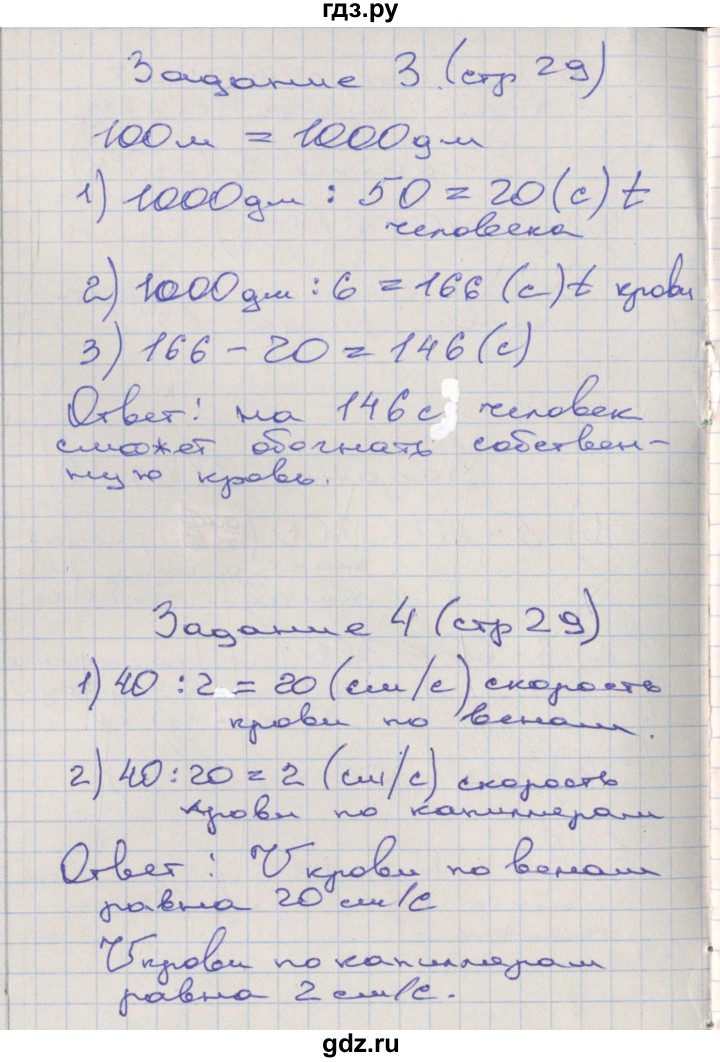 гдз.ру
Задание 3 (стр 29)
100м = 1000дм
1) 1000дм : 50 = 20 (с) t
человека
2) 1000дм : 6 = 166 (с) t крови
3) 166 - 20 = 146 (с)
Ответ: на 146с человек
сможет обогнать собствен-
ную кровь.
Задание 4 (стр 29)
1) 40 : 2 = 20 (см/с) скорость
крови по венам.
2) 40 : 20 = 2 (см/с) скорость
крови по капиллерам
Ответ: V крови по венам
равна 20 см/с
V крови по капиллерам
равна 2 см/с.
gdz.ru